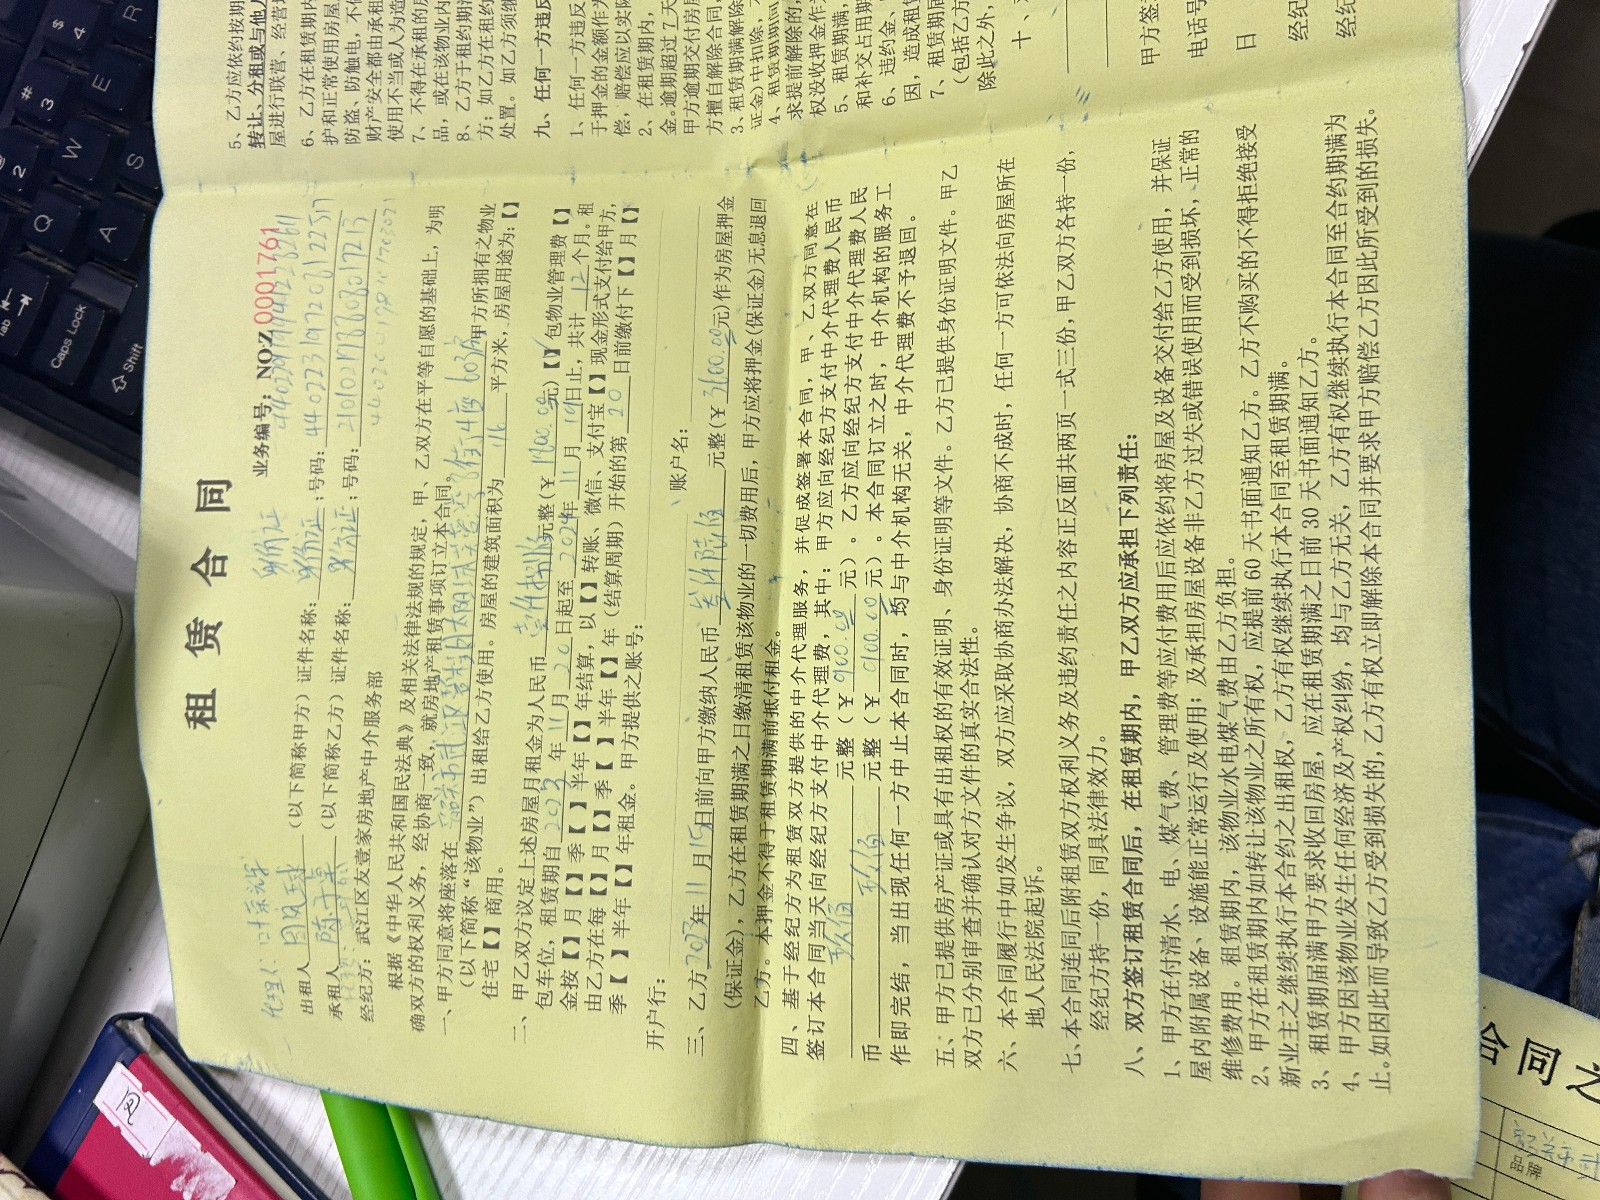 租 赁 合 同
业务编号：NO:Z 0001761
身份证
出租人 （以下简称甲方）证件名称：身份证；号码：
承租人 （以下简称乙方）证件名称：身份证；号码：
经纪方：武江区友壹家房地产中介服务部
根据《中华人民共和国民法典》及相关法律法规的规定，甲、乙双方在平等自愿的基础上，为明
确双方的权利义务，经协商一致，就房地产租赁事项订立本合同。
一、甲方同意将座落在 甲方所拥有之物业
（以下简称“该物业”）出租给乙方使用。房屋的建筑面积为 平方米，房屋用途为：【】
住宅【】商用。
二、甲乙双方议定上述房屋月租金为人民币 元整（￥1800.00元）【】包物业管理费【】
包车位，租赁期自2023年11月20日起至2024年11月19日止，共计12个月。租
金按【】月【】季【】半年【】年结算，以【】转账、微信、支付宝【】现金形式支付给甲方，
由乙方在每【】月【】季【】半年【】年（结算周期）开始的第20日前缴付下【】月【】
季【】半年【】年租金。甲方提供之账号：
开户行： 账户名：
三、乙方2023年11月15日前向甲方缴纳人民币叁仟陆佰元整（￥3600.00元）作为房屋押金
（保证金），乙方在租赁期满之日缴清租赁该物业的一切费用后，甲方应将押金（保证金）无息退回
乙方。本押金不得于租赁期满前抵付租金。
四、基于经纪方为租赁双方提供的中介代理服务，并促成签署本合同，甲、乙双方同意在
签订本合同当天向经纪方支付中介代理费，其中：甲方应向经纪方支付中介代理费人民币
玖佰元整（￥900.00元）。乙方应向经纪方支付中介代理费人民
币玖佰元整（￥900.00元）。本合同订立之时，中介机构的服务工
作即完结，当出现任何一方中止本合同时，均与中介机构无关，中介代理费不予退回。
五、甲方已提供房产证或具有出租权的有效证明、身份证明等文件。乙方已提供身份证明文件。甲乙
双方已分别审查并确认对方文件的真实合法性。
六、本合同履行中如发生争议，双方应采取协商办法解决，协商不成时，任何一方可依法向房屋所在
地人民法院起诉。
七、本合同连同后附租赁双方权利义务及违约责任之内容正反面共两页一式三份，甲乙双方各持一份，
经纪方持一份，同具法律效力。
八、双方签订租赁合同后，在租赁期内，甲乙双方应承担下列责任：
1、甲方在付清水、电、煤气费、管理费等应付费用后应依约将房屋及设备交付给乙方使用，并保证
屋内附属设备、设施能正常运行及使用；及承担房屋设备非乙方过失或错误使用而受到损坏，正常的
维修费用。租赁期内，该物业水电煤气费由乙方负担。
2、甲方在租赁期内如转让该物业之所有权，应提前 60 天书面通知乙方。乙方不购买的不得拒绝接受
新业主之继续执行本合约之出租权，乙方有权继续执行本合同至租赁期满。
3、租赁期届满甲方要求收回房屋，应在租赁期满之日前 30 天书面通知乙方。
4、甲方因该物业发生任何经济及产权纠纷，均与乙方无关，乙方有权继续执行本合同至合约期满为
止。如因此而导致乙方受到损失的，乙方有权立即解除本合同并要求甲方赔偿乙方因此所受到的损失。
5、乙方应依约按期
转让、分租或与他人
屋进行联营、经营
6、乙方在租赁期内
护和正常使用房屋
防盗、防触电，不
财产安全都由承租
使用不当或人为造
7、不得在承租的房
品，或在该物业内
8、乙方于租约期
方；如乙方在租约
处置。如乙方须继
九、任何一方违反
1、任何一方违反
于押金的金额作为
偿，赔偿应以实际
2、在租赁期内，
金。逾期超过 7 天
甲方逾期交付房屋
方擅自解除合同，
3、租赁期满解除
证金）中扣除，
4、租赁期期间
求提前解除的，
权没收押金作
5、租赁期满，
和补交占用期
6、违约金、
因，造成租赁
7、租赁期届
（包括乙方
除此之外，
十、
甲方签
电话号
日
经纪
经纪
Tab
Caps Lock
Shift
Q
W
E
R
A
S
2
# 3
$ 4